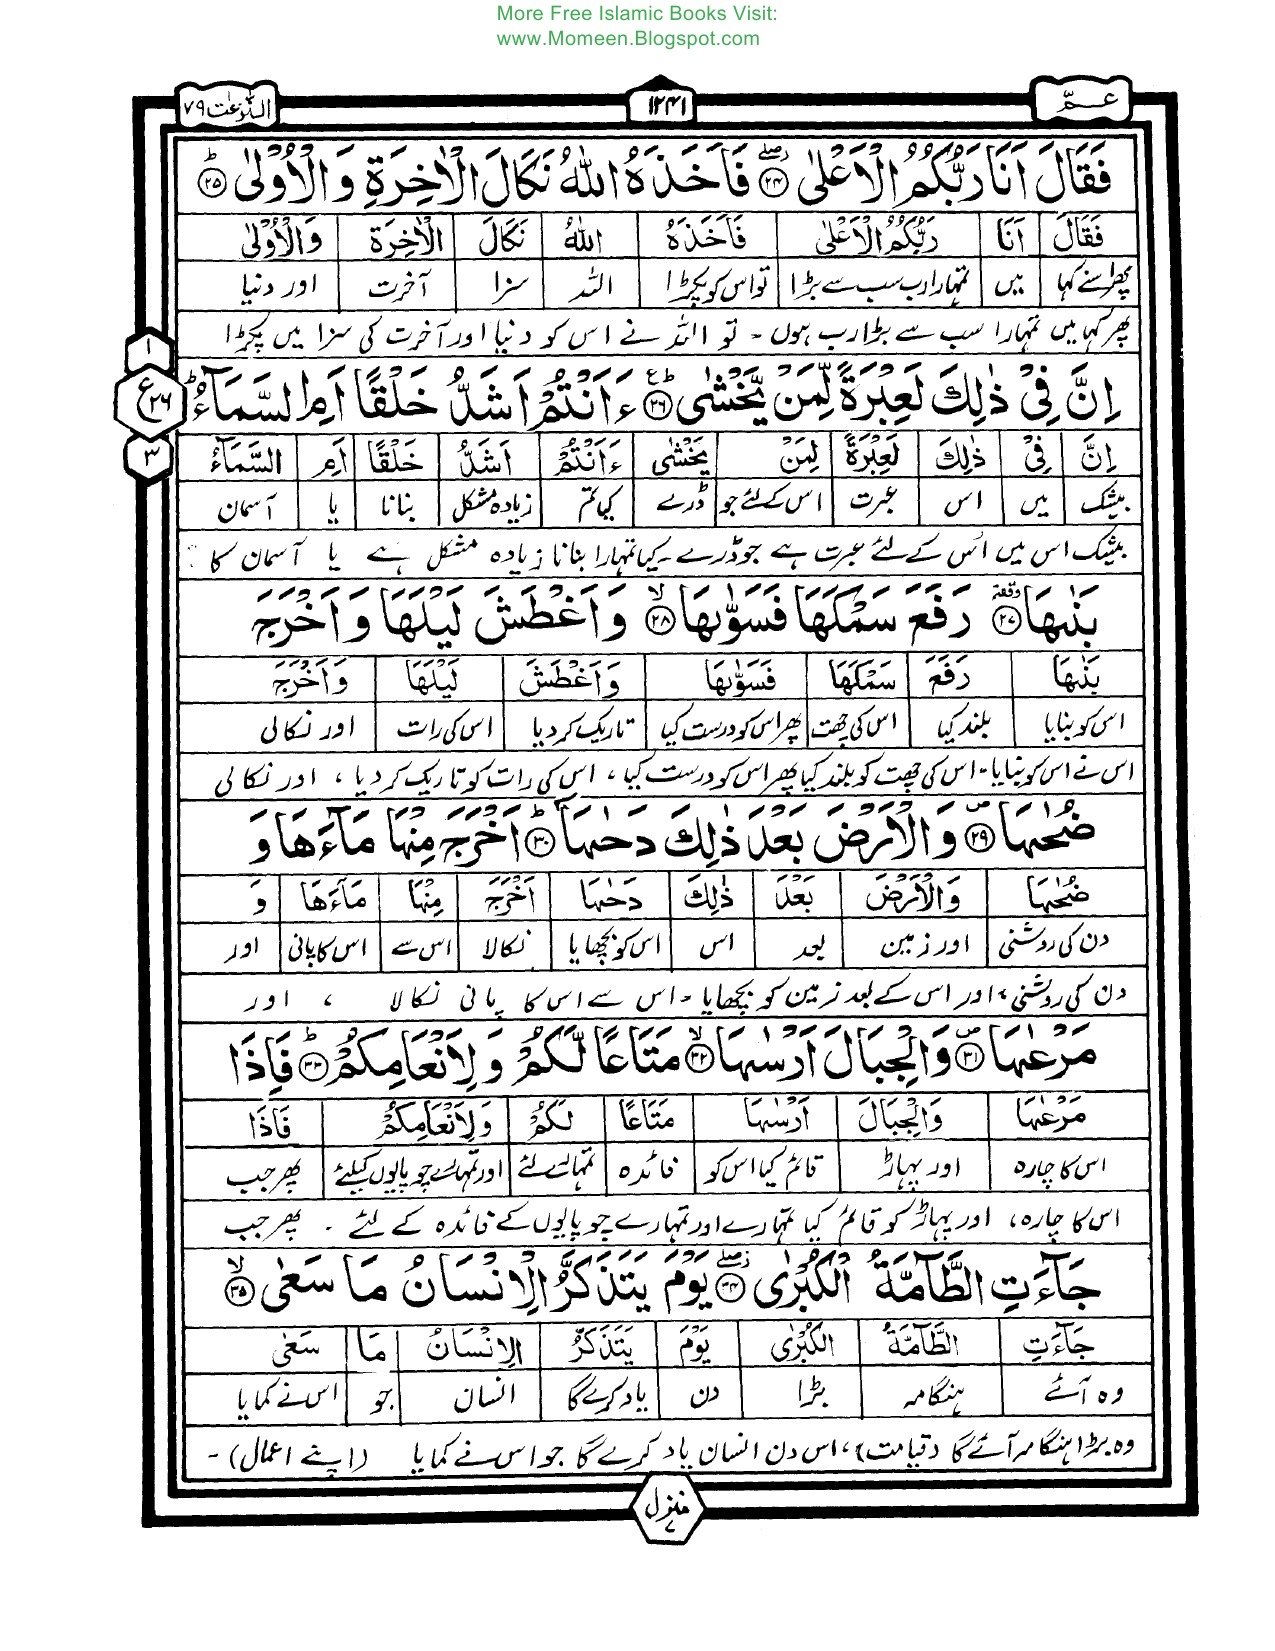 More Free Islamic Books Visit:
www.Momeen.Blogspot.com
عـمّ
۱۲۴۱
النّٰزعٰت ۷۹
فَقَالَ اَنَا رَبُّكُمُ الْاَعْلٰى ۲۴ فَاَخَذَهُ اللّٰهُ نَكَالَ الْاٰخِرَةِ وَالْاُوْلٰى ۲۵
فَقَالَ اَنَا رَبُّكُمُ الْاَعْلٰى فَاَخَذَهُ اللّٰهُ نَكَالَ الْاٰخِرَةِ وَالْاُوْلٰى
پھر اسنے کہا میں تمہارا رب سب سے بڑا تو اس کو پکڑا اللہ سزا آخرت اور دنیا
پھر کہا میں تمہارا سب سے بڑا رب ہوں ۔ تو اللہ نے اس کو دنیا اور آخرت کی سزا میں پکڑا
۱
ع ۲۶
۳
اِنَّ فِيْ ذٰلِكَ لَعِبْرَةً لِّمَنْ يَّخْشٰى ۲۶ ءَاَنْتُمْ اَشَدُّ خَلْقًا اَمِ السَّمَآءُ
اِنَّ فِيْ ذٰلِكَ لَعِبْرَةً لِمَنْ يَخْشٰى ءَاَنْتُمْ اَشَدُّ خَلْقًا اَمِ السَّمَآءُ
بیشک میں اس عبرت اس کے لئے جو ڈرے کیا تم زیادہ مشکل بنانا یا آسمان
بیشک اس میں اس کے لئے عبرت ہے جو ڈرے ۔ کیا تمہارا بنانا زیادہ مشکل ہے یا آسمان کا ؟
بَنٰىهَا ۲۷ رَفَعَ سَمْكَهَا فَسَوّٰىهَا ۲۸ وَاَغْطَشَ لَيْلَهَا وَاَخْرَجَ
بَنٰىهَا رَفَعَ سَمْكَهَا فَسَوّٰىهَا وَاَغْطَشَ لَيْلَهَا وَاَخْرَجَ
اس کو بنایا بلند کیا اس کی چھت پھر اس کو درست کیا تاریک کر دیا اس کی رات اور نکالی
اس نے اس کو بنایا ۔ اس کی چھت کو بلند کیا پھر اس کو درست کیا ، اس کی رات کو تاریک کر دیا ، اور نکالی
ضُحٰىهَا ۲۹ وَالْاَرْضَ بَعْدَ ذٰلِكَ دَحٰىهَا ۳۰ اَخْرَجَ مِنْهَا مَآءَهَا وَ
ضُحٰىهَا وَالْاَرْضَ بَعْدَ ذٰلِكَ دَحٰىهَا اَخْرَجَ مِنْهَا مَآءَهَا وَ
دن کی روشنی اور زمین بعد اس اس کو بچھایا نکالا اس سے اس کا پانی اور
دن کی روشنی ، اور اس کے بعد زمین کو بچھایا ۔ اس سے اس کا پانی نکالا ، اور
مَرْعٰىهَا ۳۱ وَالْجِبَالَ اَرْسٰىهَا ۳۲ مَتَاعًا لَّكُمْ وَلِاَنْعَامِكُمْ ۳۳ فَاِذَا
مَرْعٰىهَا وَالْجِبَالَ اَرْسٰىهَا مَتَاعًا لَكُمْ وَلِاَنْعَامِكُمْ فَاِذَا
اس کا چارہ اور پہاڑ قائم کیا اس کو فائدہ تمہارے لئے اور تمہارے چوپایوں کیلئے پھر جب
اس کا چارہ ، اور پہاڑ کو قائم کیا تمہارے اور تمہارے چوپایوں کے فائدہ کے لئے ۔ پھر جب
جَآءَتِ الطَّآمَّةُ الْكُبْرٰى ۳۴ يَوْمَ يَتَذَكَّرُ الْاِنْسَانُ مَا سَعٰى ۳۵
جَآءَتِ الطَّآمَّةُ الْكُبْرٰى يَوْمَ يَتَذَكَّرُ الْاِنْسَانُ مَا سَعٰى
وہ آئے ہنگامہ بڑا دن یاد کرے گا انسان جو اس نے کمایا
وہ بڑا ہنگامہ آئے گا (قیامت) ، اس دن انسان یاد کرے گا جو اس نے کمایا (اپنے اعمال) ۔
منزل ۷